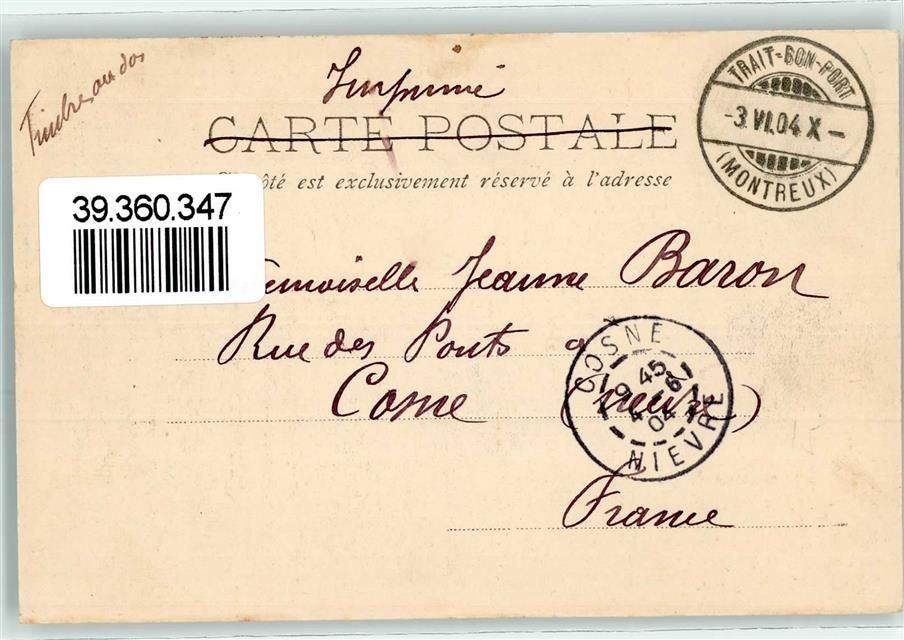 Timbre au dos
Imprimé
CARTE POSTALE
côté est exclusivement réservé à l'adresse
TRAIT-BON-PORT
-3.VI.04 X-
(MONTREUX)
39.360.347
emoiselle Jeanne Baron
Rue des Ponts à
Cosne (Nièvre)
France
COSNE
9 45
4 -6
04
NIEVRE